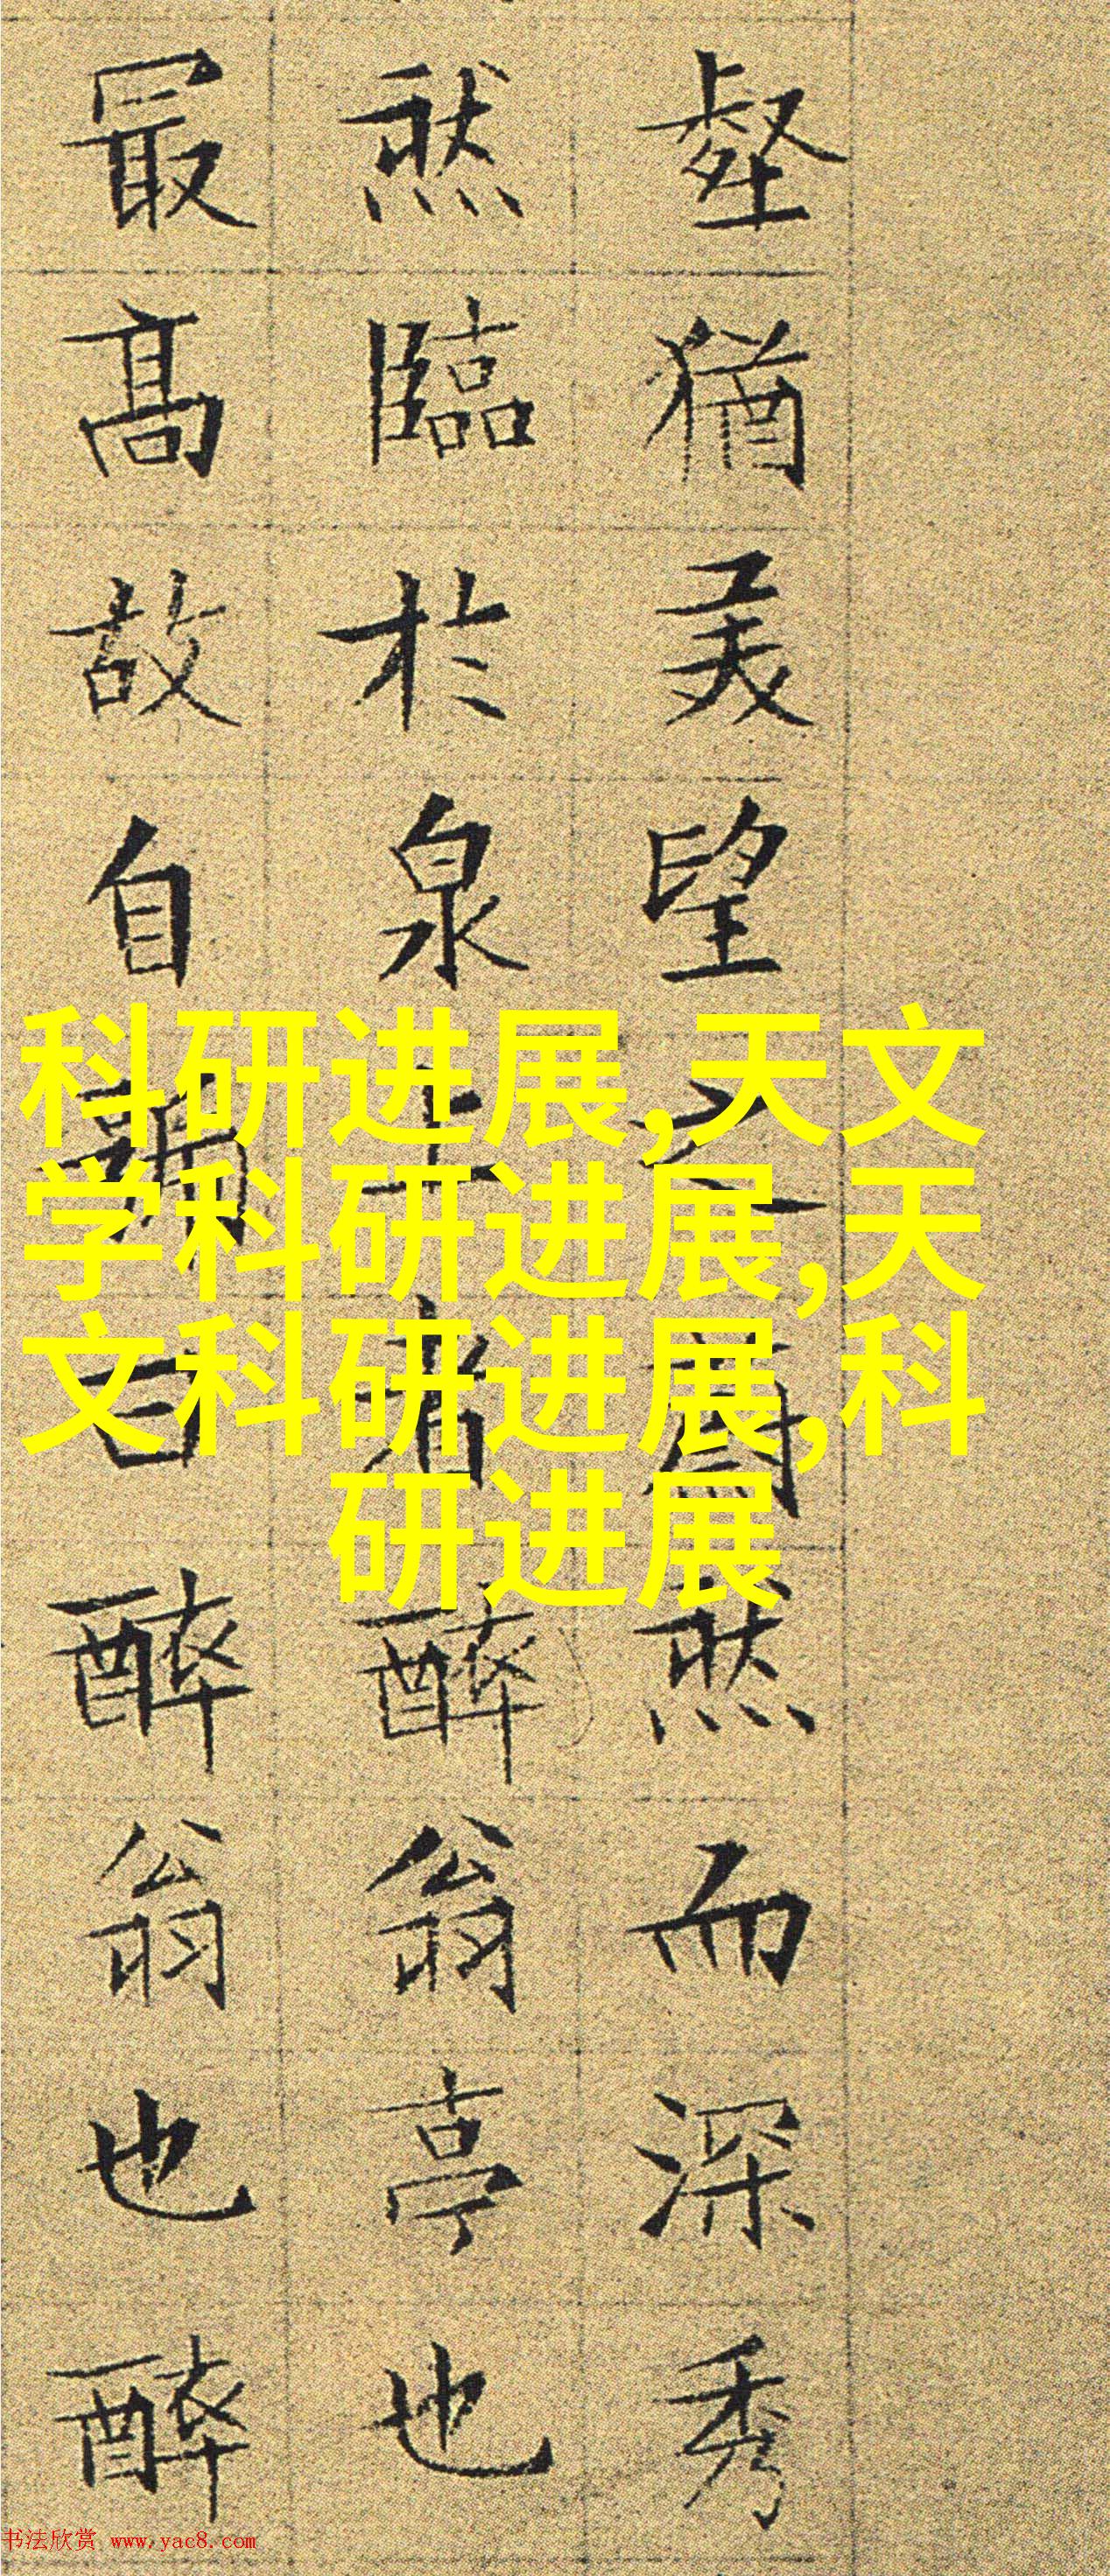 壑猶美望之蔚然而深秀
然臨於泉上者醉翁亭也
最高故自號曰醉翁也醉
科研进展,天文
学科研进展,天
文科研进展,科
研进展
书法欣赏 www.yac8.com